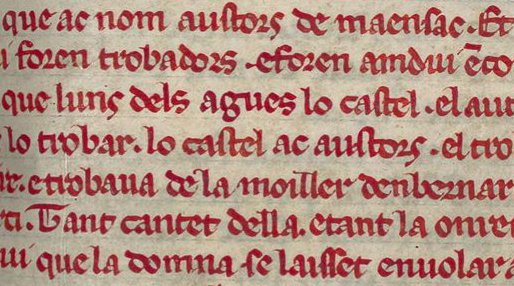 que ac nom austors de maensac. Et
i foren trobadors. eforen amdui ẽco
que luns dels agues lo castel. el aut
lo trobar. lo castel ac austors. el tro
ar. etrobaua de la moiller denbernar
rti. Tant cantet della. etant la onret
ui que la domna se laisset enuolar a